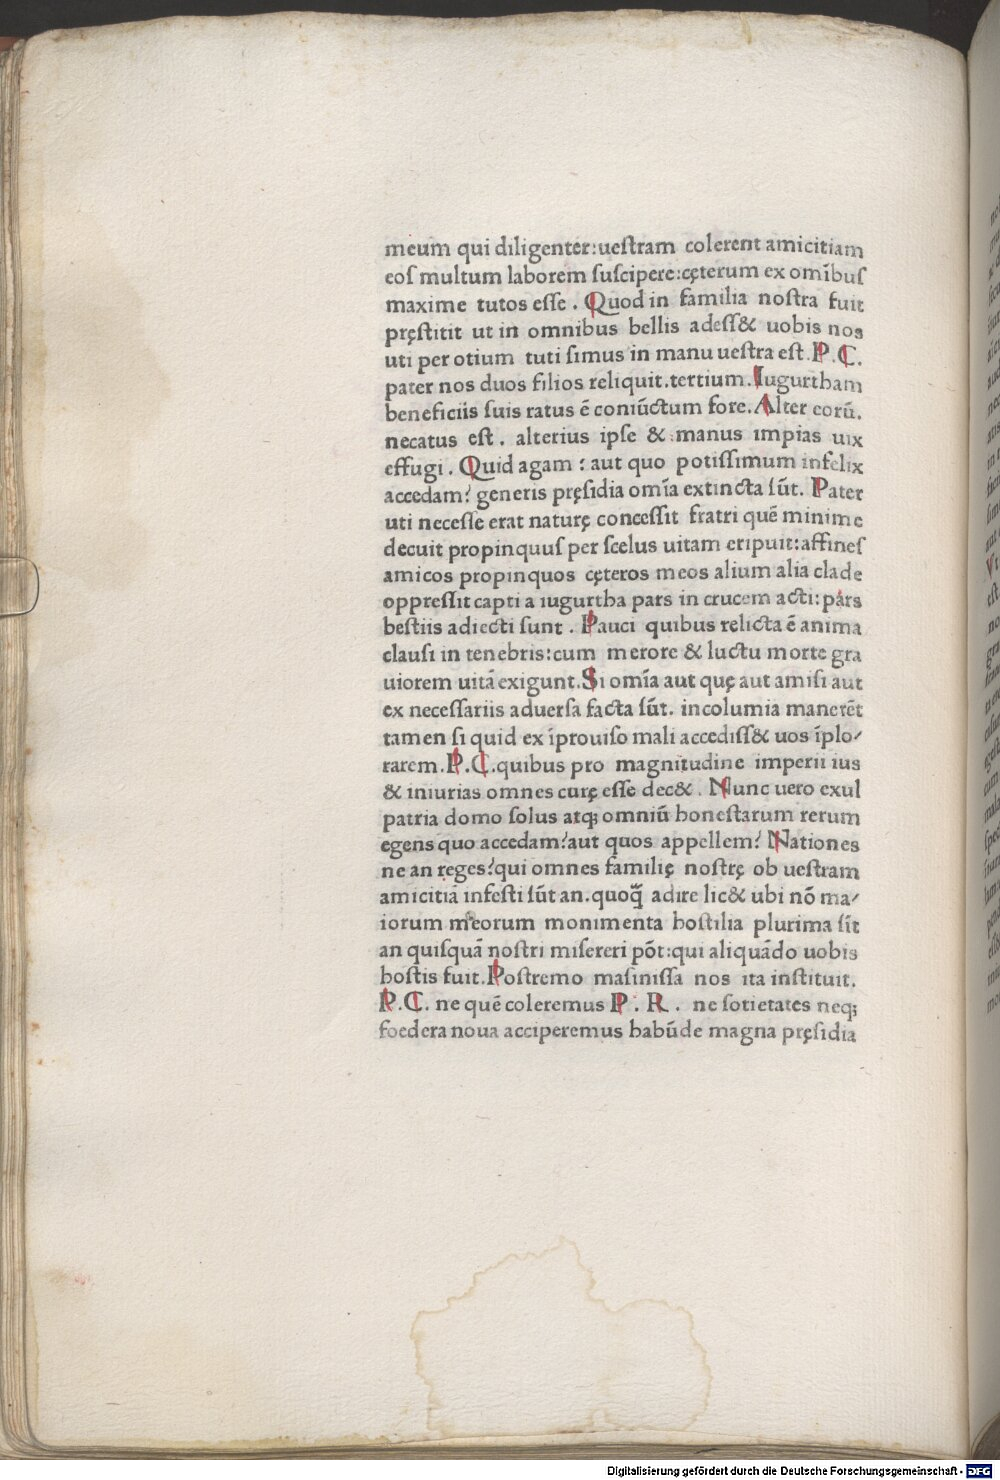 meum qui diligenter:ueſtram colerent amicitiam
eoſ multum laborem ſuſcipere:cęterum ex omı̄buſ
maxime tutos eſſe . Quod in familia noſtra fuit
pręſtitit ut in omnibus bellis adeſſ& uobis nos
uti per otium tuti ſimus in manu ueſtra eſt.P.C.
pater nos duos filios reliquit.tertium.Iugurtham
beneficiis ſuis ratus ē coniūctum fore.Alter eorū.
necatus eſt . alterius ipſe & manus impias uix
effugi . Quid agam ? aut quo potiſſimum infelix
accedam? generis pręſidia omı̄a extincta ſūt. Pater
uti neceſſe erat naturę conceſſit fratri quē minime
decuit propinquuſ per ſcelus uitam eripuit:affineſ
amicos propinquos cęteros meos alium alia clade
oppreſſit capti a iugurtha pars in crucem acti:pars
beſtiis adiecti ſunt . Pauci quibus relicta ē anima
clauſi in tenebris:cum merore & luctu morte gra
uiorem uitā exigunt.Si omı̄a aut quę aut amiſi aut
ex neceſſariis aduerſa facta ſūt. incolumia manerēt
tamen ſi quid ex ı̄prouiſo mali accediſſ& uos ı̄plo/
rarem.P.C.quibus pro magnitudine imperii ius
& iniurias omnes curę eſſe dec& . Nunc uero exul
patria domo ſolus atq; omniū honeſtarum rerum
egens quo accedam?aut quos appellem? Nationes
ne an reges?qui omnes familię noſtrę ob ueſtram
amicitiā infeſti ſūt an.quoq̄ adire lic& ubi nō ma/
iorum meorum monimenta hoſtilia plurima ſı̄t
an quiſquā noſtri miſereri pōt:qui aliquādo uobis
hoſtis fuit.Poſtremo maſiniſſa nos ita inſtituit.
P.C. ne quē coleremus P . R . ne ſotietates neq;
foedera noua acciperemus habūde magna pręſidia
Digitalisierung gefördert durch die Deutsche Forschungsgemeinschaft - DFG